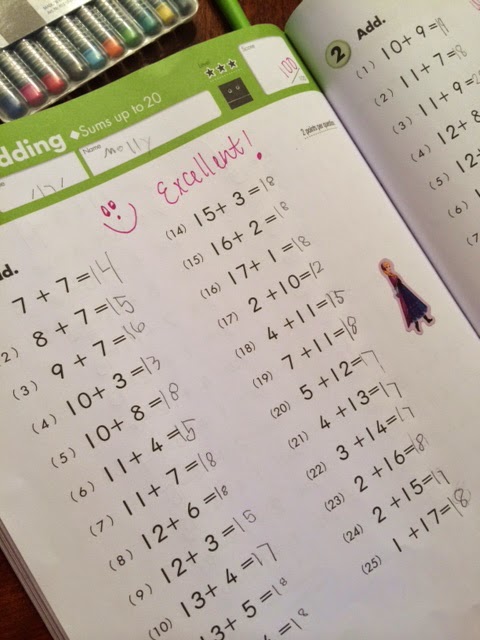 dding ◆Sums up to 20
Level ★★★
Score
100
Name
Molly
2 points per question
Excellent!
dd.
7 + 7 = 14
2) 8 + 7 = 15
(3) 9 + 7 = 16
(4) 10 + 3 = 13
(5) 10 + 8 = 18
(6) 11 + 4 = 15
(7) 11 + 7 = 18
(8) 12 + 6 = 18
(9) 12 + 3 = 15
(10) 13 + 4 = 17
13 + 5 = 18
(14) 15 + 3 = 18
(15) 16 + 2 = 18
(16) 17 + 1 = 18
(17) 2 + 10 = 12
(18) 4 + 11 = 15
(19) 7 + 11 = 18
(20) 5 + 12 = 17
(21) 4 + 13 = 17
(22) 3 + 14 = 17
(23) 2 + 16 = 18
(24) 2 + 15 = 17
(25) 1 + 17 = 18
2 Add.
(1) 10 + 9 = 19
(2) 11 + 7 = 18
(3) 11 + 9 = 20
(4) 12 + 8
(5) 12 +
(6) 1
(7)